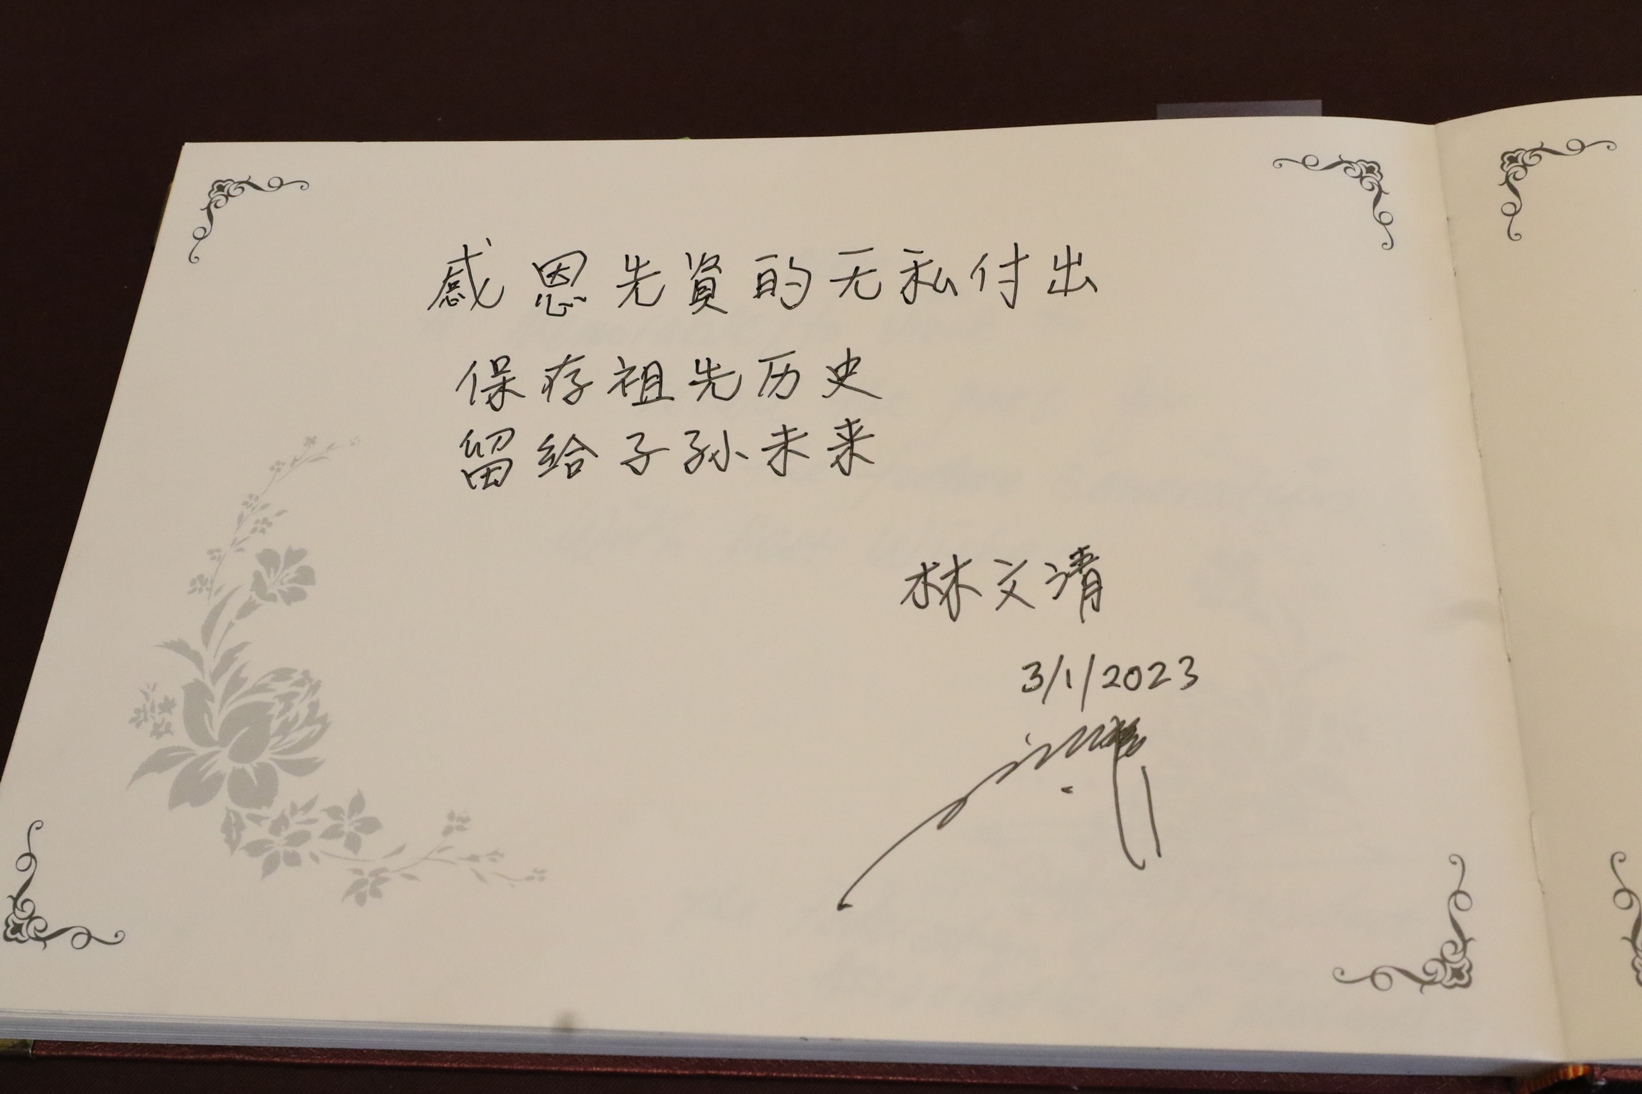 感恩先賢的无私付出
保存祖先历史
留给子孙未来
林文清
3/1/2023